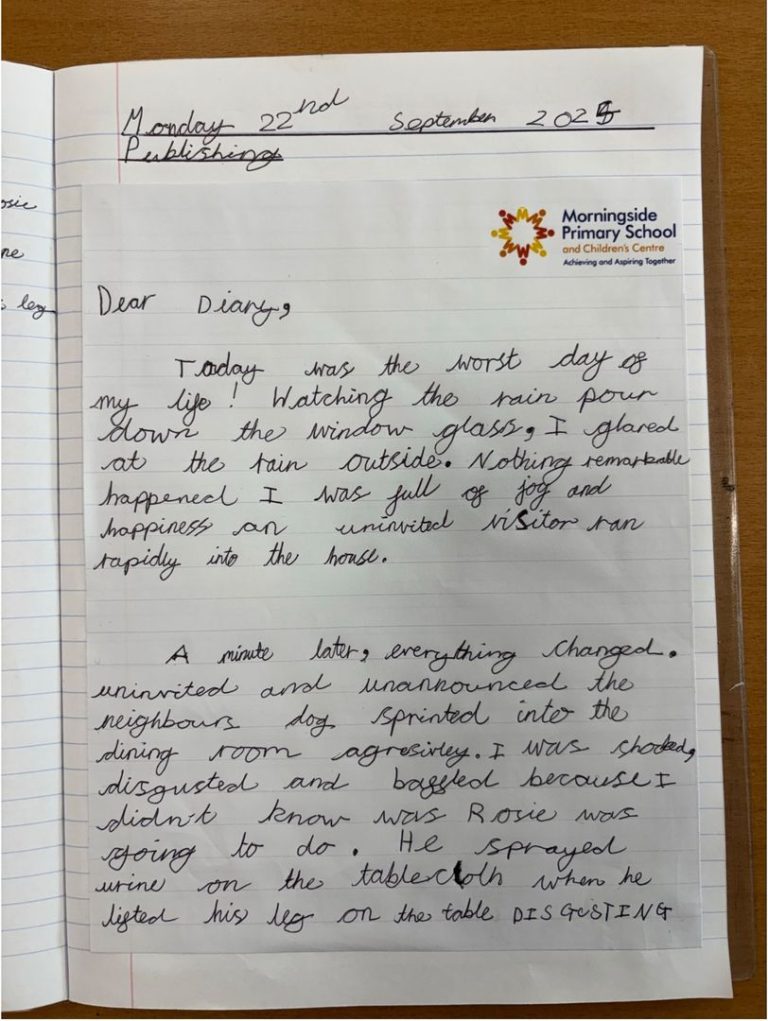 osie
ne
s leg
Monday 22nd September 2025
Publishing
Morningside
Primary School
and Children's Centre
Achieving and Aspiring Together
Dear Diary,
Today was the worst day of
my life! Watching the rain pour
down the window glass, I glared
at the rain outside. Nothing remarkable
happened I was full of joy and
happiness an uninvited visitor ran
rapidly into the house.
A minute later, everything changed.
uninvited and unannounced the
neighbours dog sprinted into the
dining room agresivley. I was shocked,
disgusted and baffled because I
didn't know was Rosie was
going to do. He sprayed
urine on the tablecloth when he
lifted his leg on the table DISGUSTING